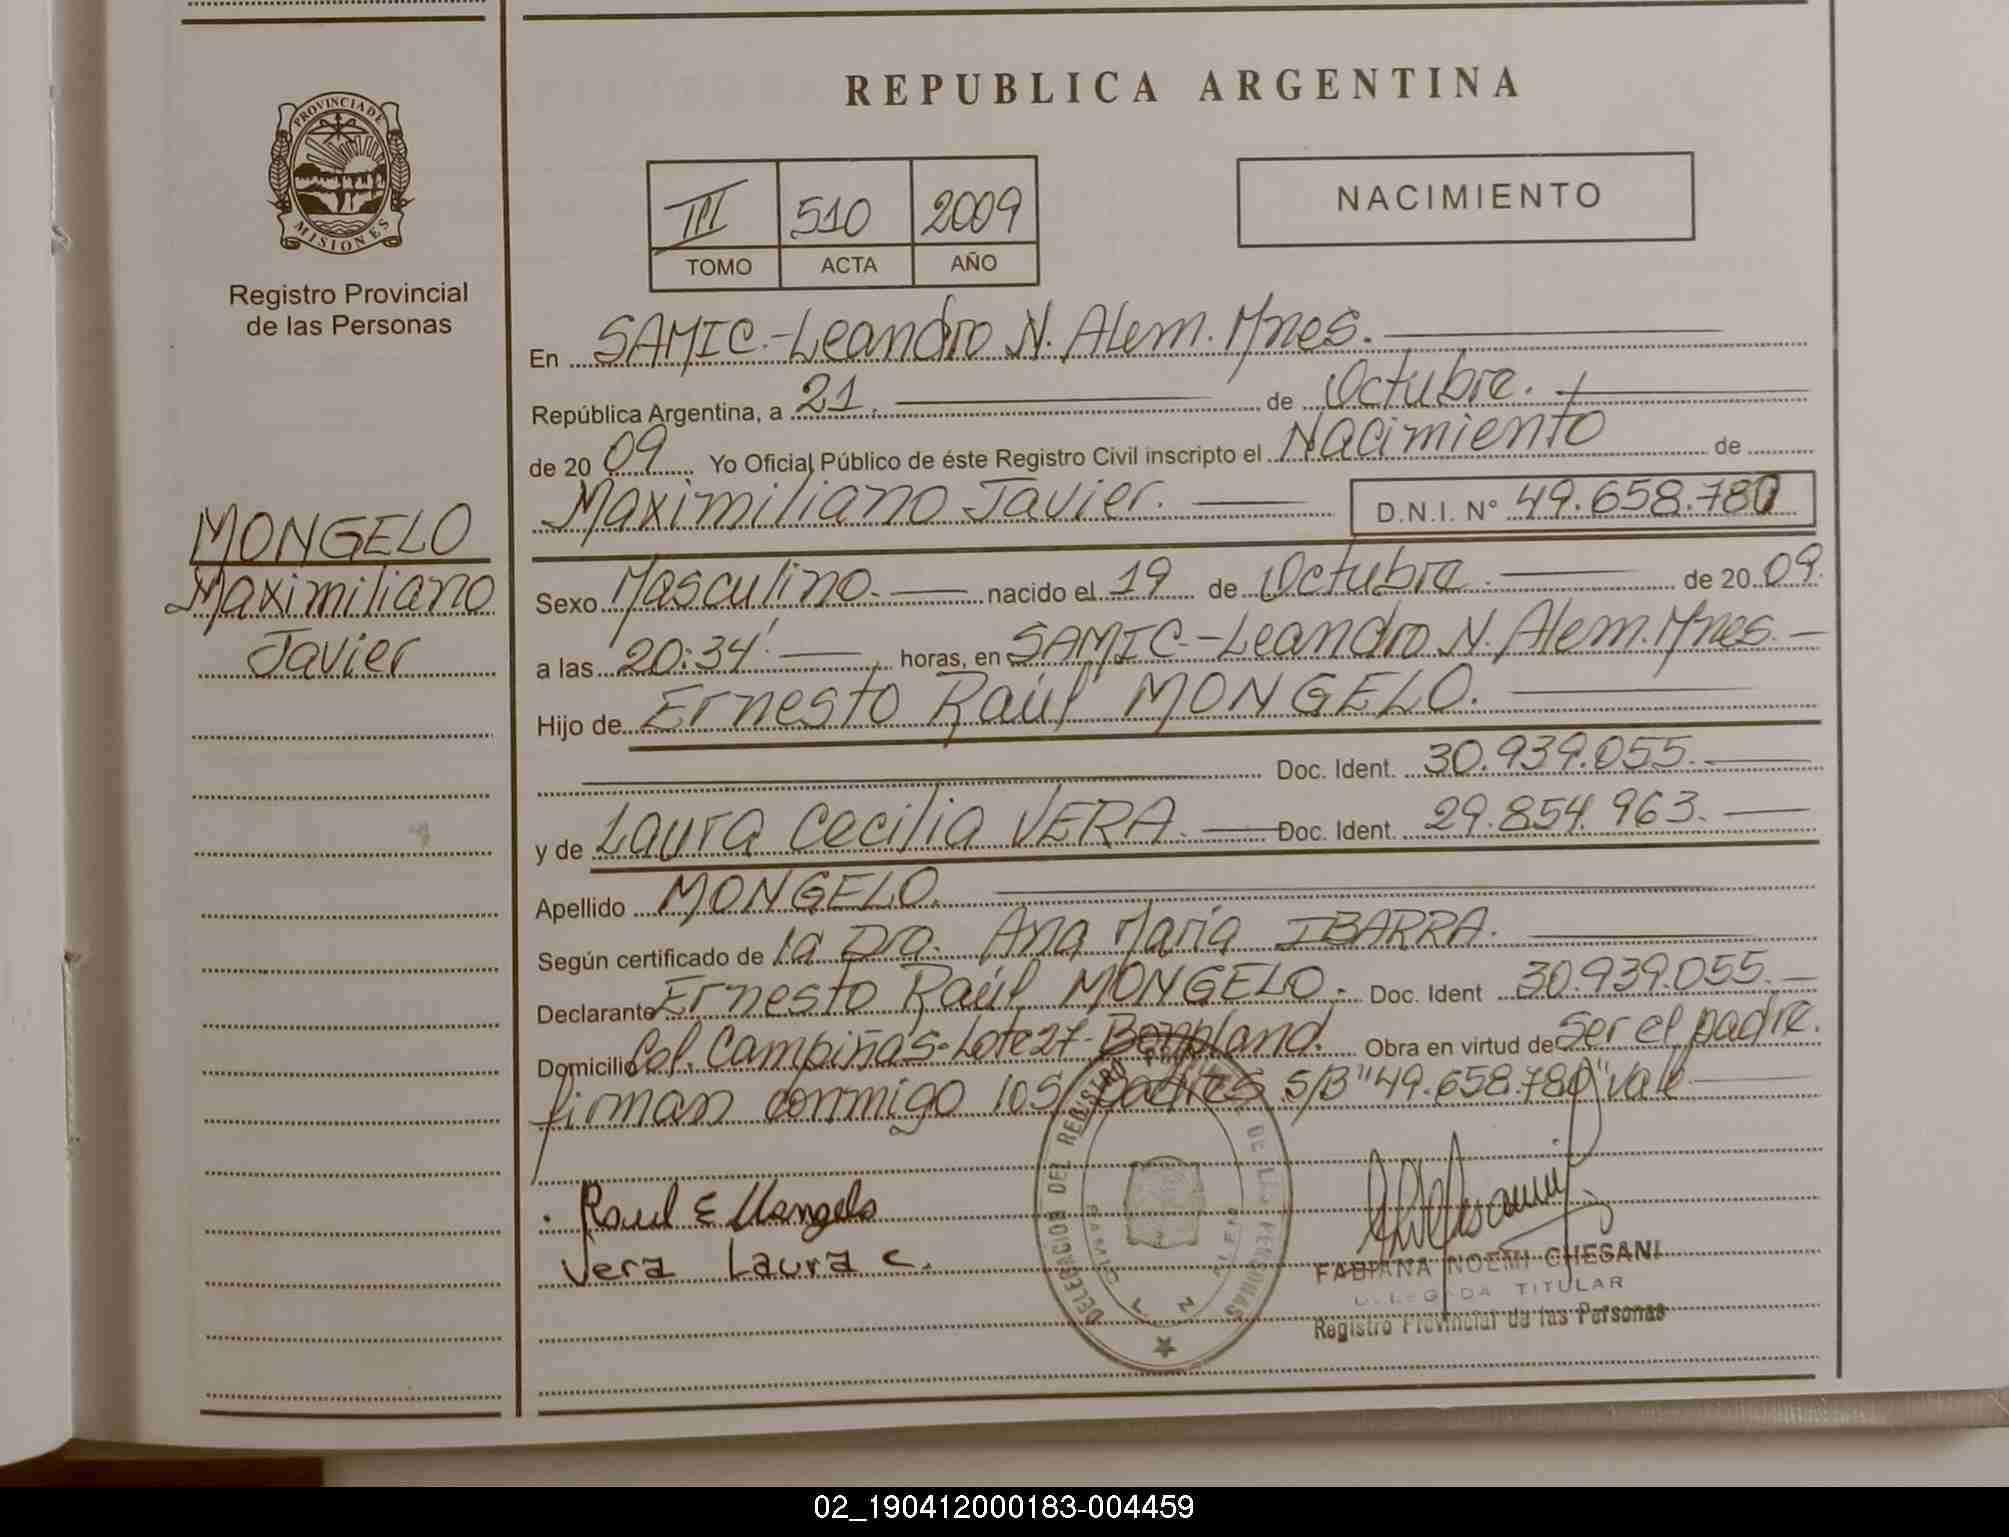 REPUBLICA ARGENTINA
PROVINCIA DE MISIONES
Registro Provincial
de las Personas
III 510 2009
TOMO ACTA AÑO
NACIMIENTO
En SAMIC.-Leandro N. Alem. Mnes.
República Argentina, a 21. de Octubre.
de 20 09 Yo Oficial Público de éste Registro Civil inscripto el Nacimiento de
Maximiliano Javier. D.N.I. Nº 49.658.780
MONGELO
Maximiliano
Javier
Sexo Masculino. nacido el 19 de Octubre. de 20 09.
a las 20:34'. horas, en SAMIC-Leandro N. Alem. Mnes.
Hijo de Ernesto Raúl MONGELO.
Doc. Ident. 30.939.055.
y de Laura Cecilia VERA. Doc. Ident. 29.854.963.
Apellido MONGELO.
Según certificado de la Dra. Ana María IBARRA.
Declarante Ernesto Raúl MONGELO. Doc. Ident 30.939.055.
Domicilio Col. Campiñas-Lote 27-Bonpland. Obra en virtud de Ser el padre.
firman conmigo los padres. S/B "49.658.780" vale
Raul E Mongelo
Vera Laura C.
DELEGACION DEL REGISTRO DE LAS PERSONAS
SAMIC L N ALEM
FABIANA NOEMI CHESANI
DELEGADA TITULAR
Registro Provincial de las Personas
02_190412000183-004459